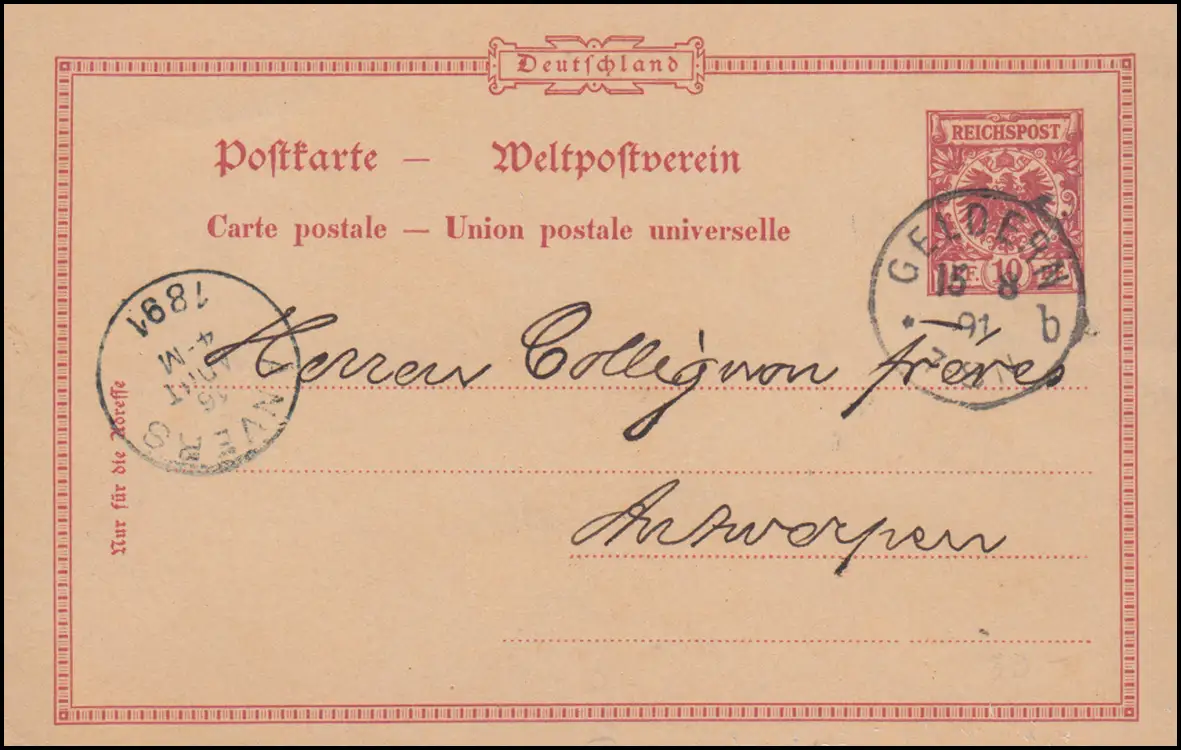 Deutschland
REICHSPOST
Postkarte — Weltpostverein
Carte postale — Union postale universelle
GELDERN
15 8
91
PF. 10
b
1891
4-M
16
AOUT
ANVERS
Herren Collignon frères
Antwerpen
Nur für die Adresse